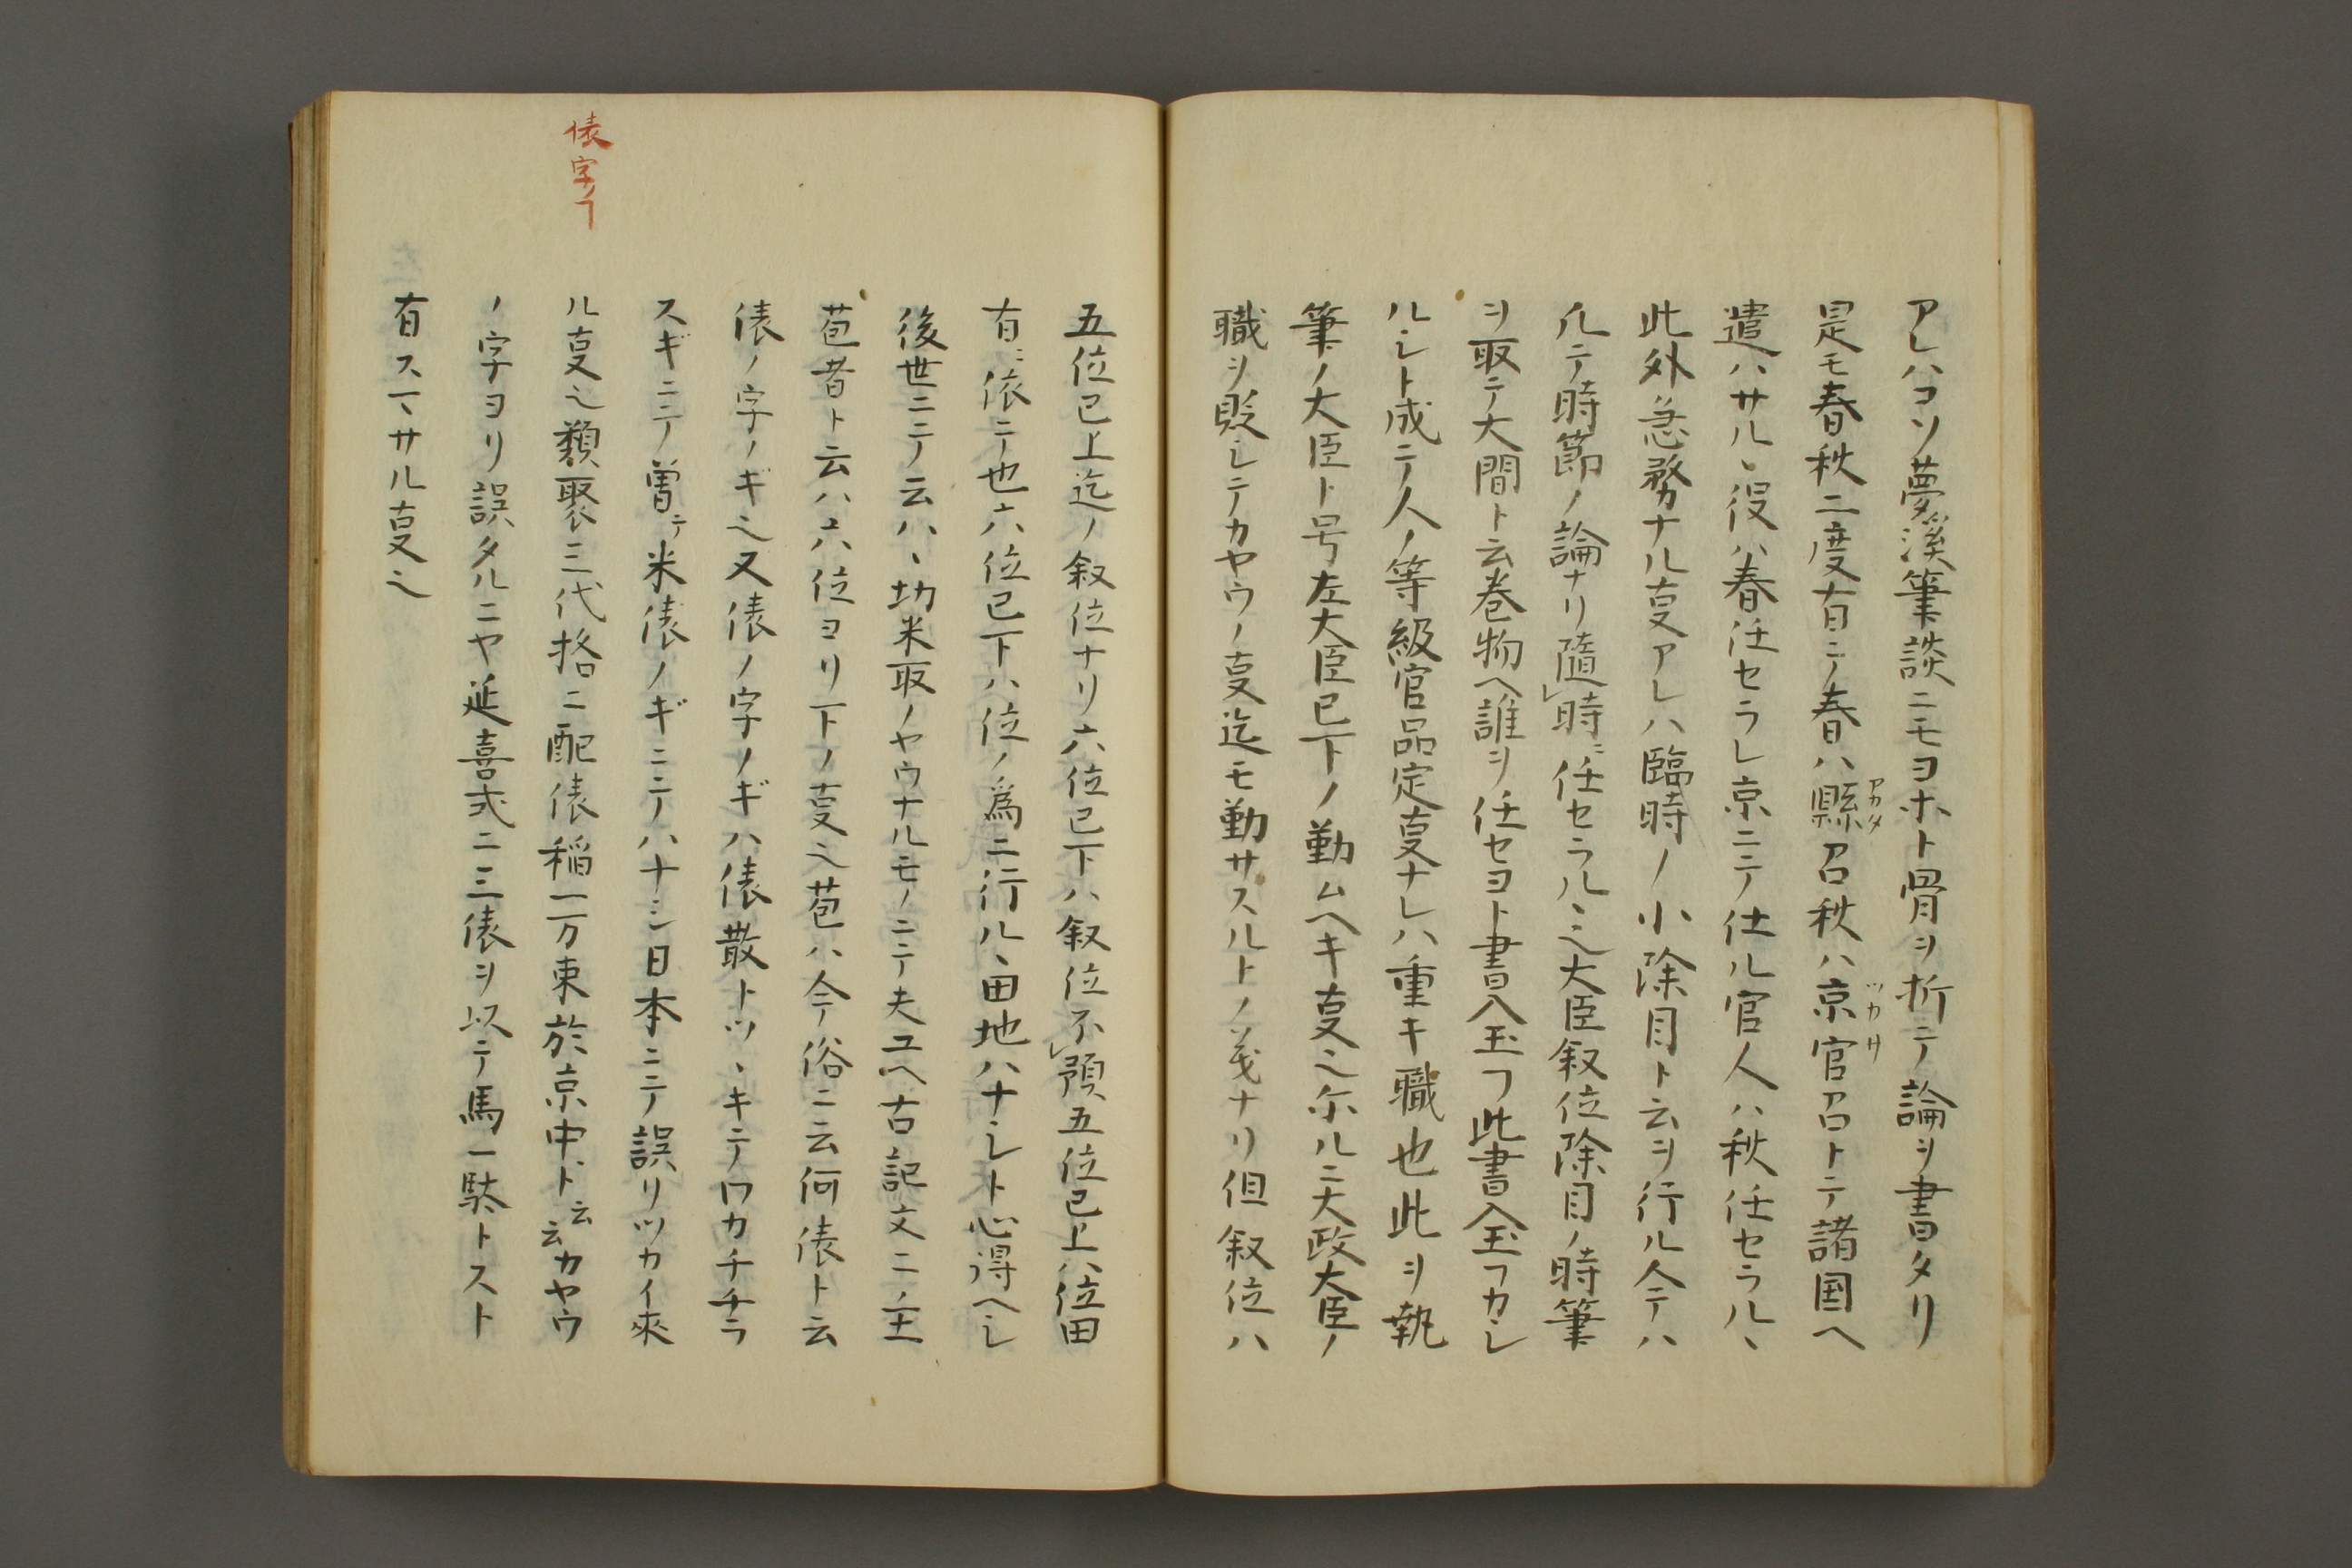 アレハコソ夢溪筆談ニモヨホト骨ヲ折テ論ヲ書タリ
是モ春秋二度有テ春ハ縣召秋ハ京官召トテ諸国ヘ
アカタ
ツカサ
遣ハサルヽ役ハ春任セラレ京ニテ仕ル官人ハ秋任セラルヽ
此外急務ナル叓アレハ臨時ノ小除目ト云ヲ行ル今テハ
凡テ時節ノ論ナリ隨レ時ニ任セラルヽ也大臣叙位除目ノ時筆
ヲ取テ大間ト云巻物ヘ誰ヲ任セヨト書入玉フ此書入玉フカシ
ルシト成テ人ノ等級官品定叓ナレハ重キ職也此ヲ執
筆ノ大臣ト号左大臣已下ノ勤ムヘキ叓也尓ルニ大政大臣ノ
職ヲ貶シテカヤウノ叓迄モ勤サスルトノ義ナリ但叙位ハ
五位已上迄ノ叙位ナリ六位已下ハ叙位不レ預五位已上ハ位田
有ニ依テ也六位已下ハ位ノ爲ニ行ルヽ田地ハナシト心得ヘシ
後世ニテ云ハヽ功米取ノヤウナルモノニテ夫ユヘ古記文ニノ王
苞者ト云ハ六位ヨリ下ノ叓也苞ハ今俗ニ云何俵ト云
俵ノ字ノギ也又俵ノ字ノギハ俵散トツヽキテワカチチラ
スギニテ曽テ米俵ノギニテハナシ日本ニテ誤リツカイ來
俵字ノヿ
ル叓也類聚三代格ニ配俵稲一万束於京中ト云云カヤウ
ノ字ヨリ誤タルニヤ延喜式ニ三俵ヲ以テ馬一駄トスト
有スマサル叓也